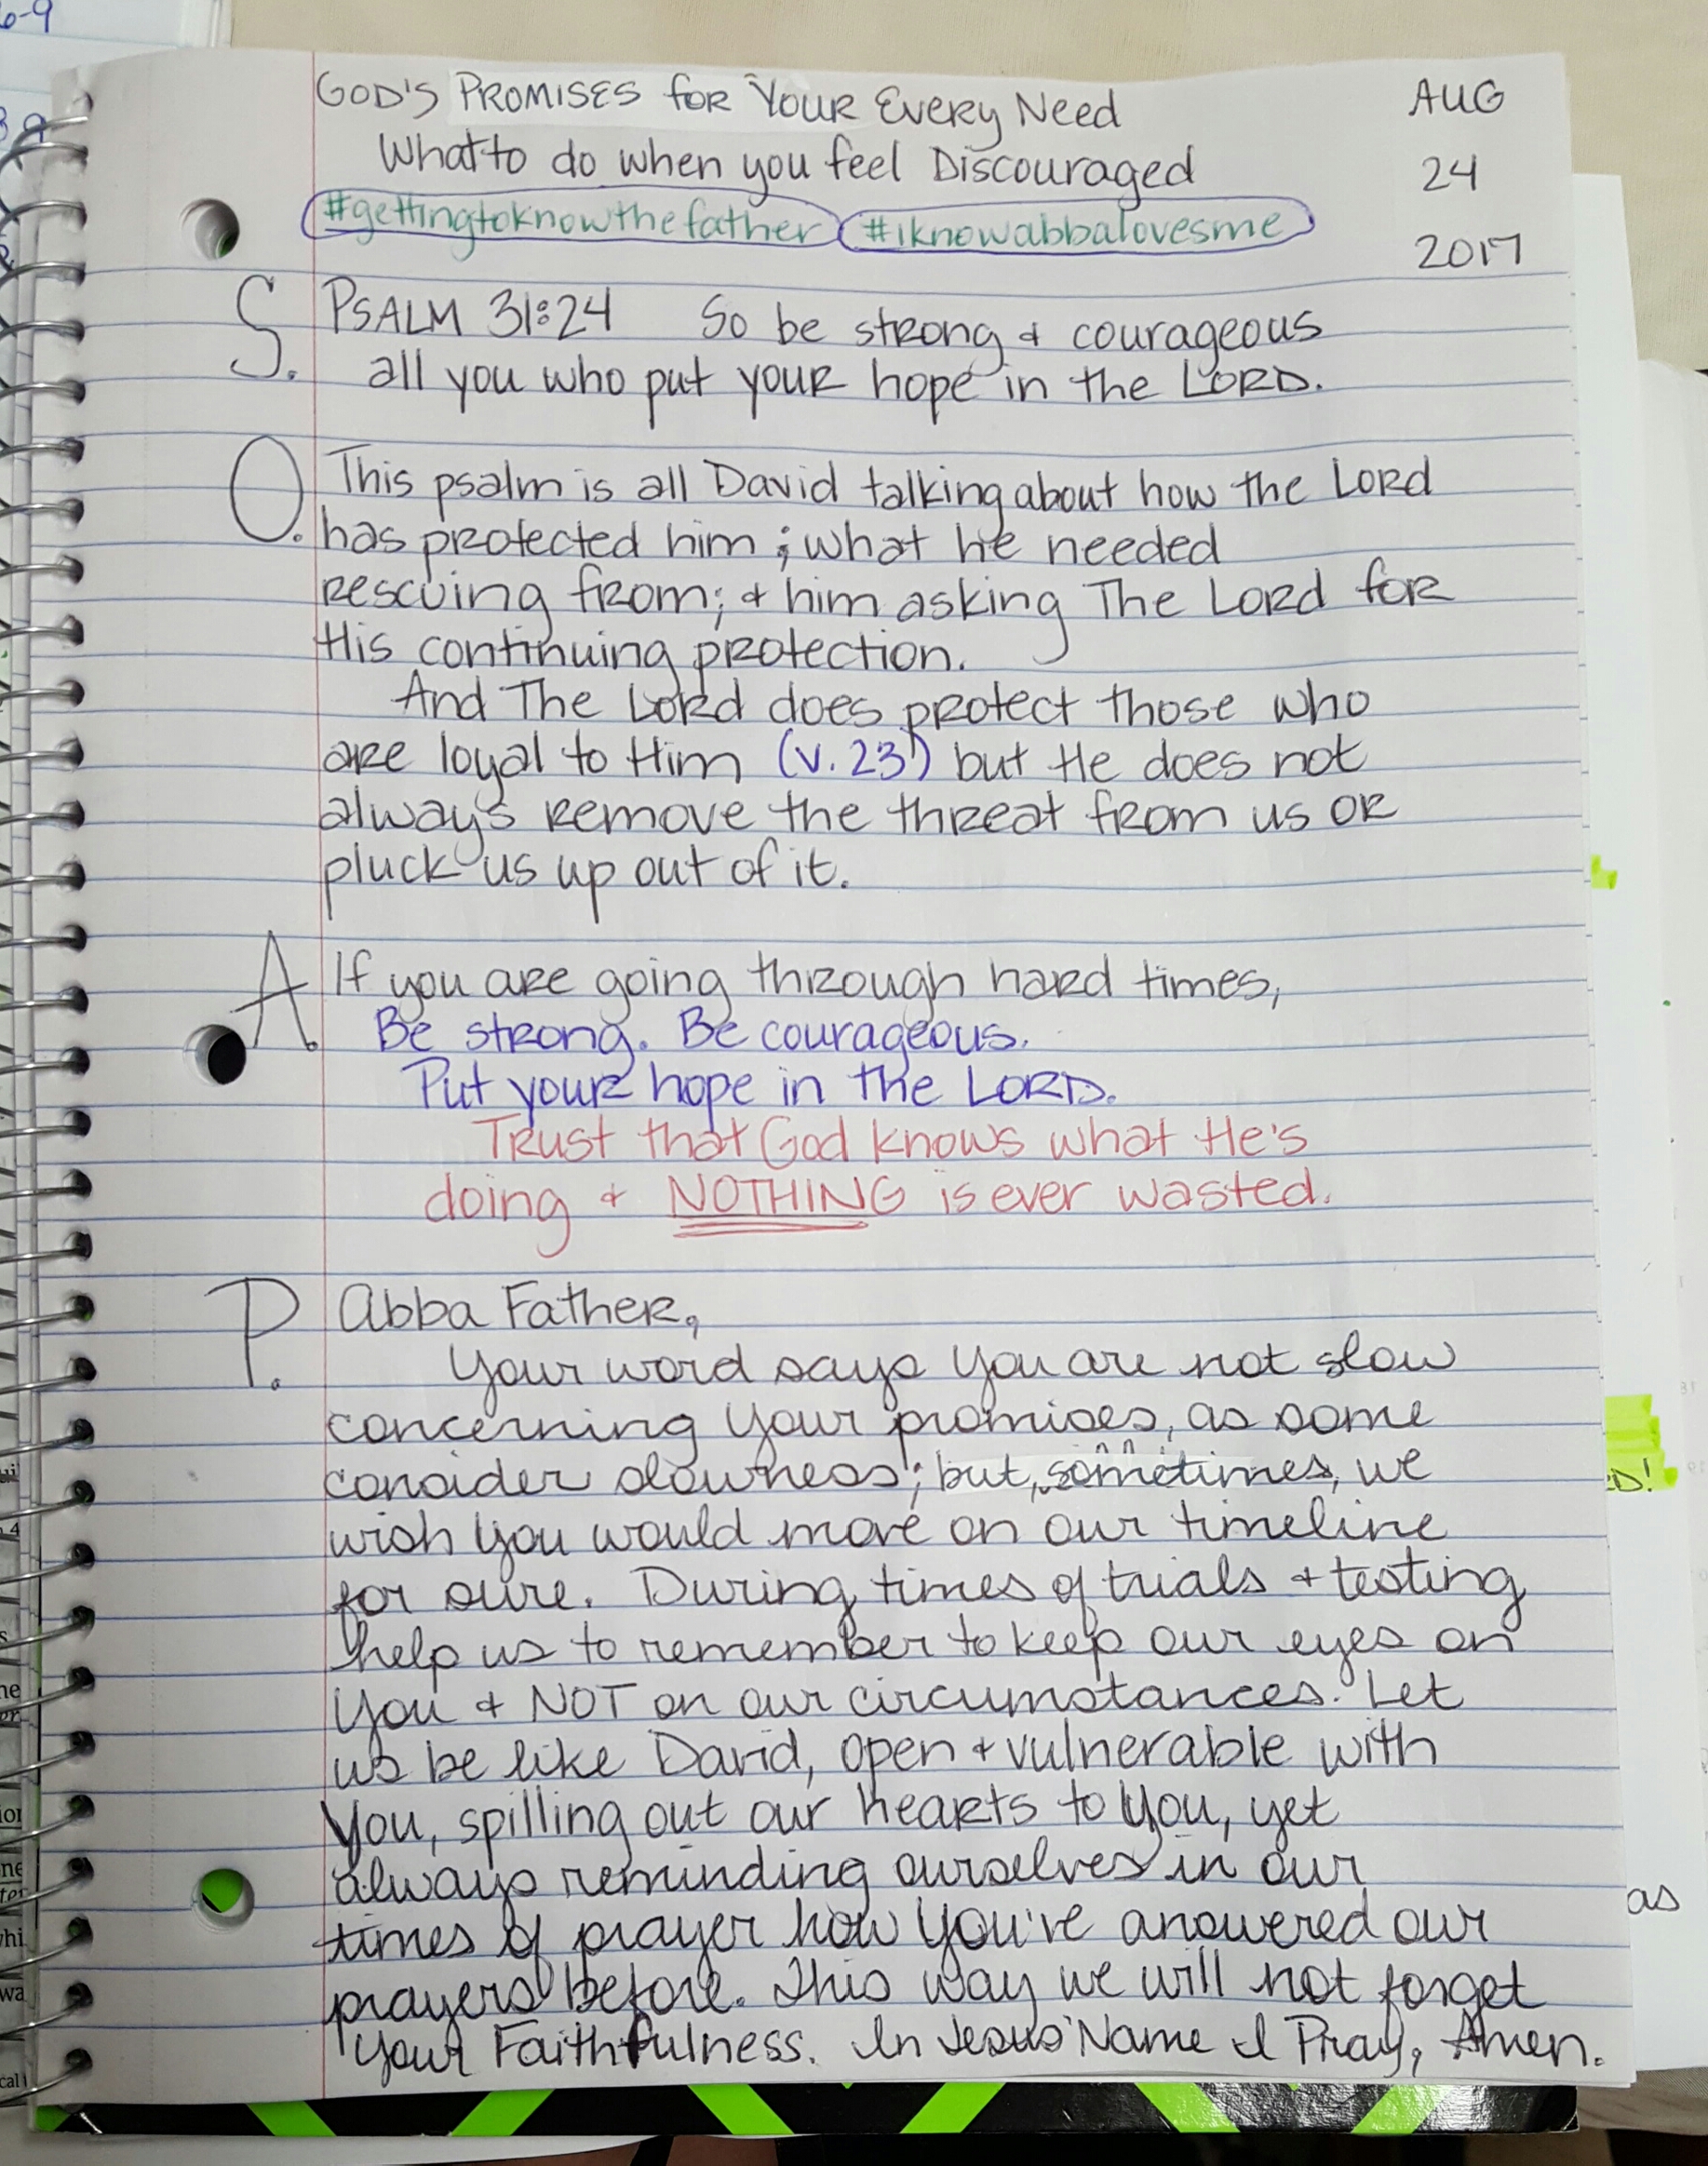 GOD'S PROMISES FOR YOUR EVERY NEED
AUG
What to do when you feel Discouraged
24
#gettingtoknowthefather #iknowabbalovesme
2017
S. PSALM 31:24 So be strong & courageous
all you who put your hope in the LORD.
O. This psalm is all David talking about how the Lord
has protected him; what he needed
rescuing from; & him asking The Lord for
His continuing protection.
And The Lord does protect those who
are loyal to Him (v. 23) but He does not
always remove the threat from us or
pluck us up out of it.
A. If you are going through hard times,
Be strong. Be courageous.
Put your hope in the LORD.
Trust that God knows what He's
doing & NOTHING is ever wasted.
P. Abba Father,
Your word says You are not slow
concerning Your promises, as some
consider slowness; but, sometimes, we
wish You would move on our timeline
for sure. During times of trials & testing
help us to remember to keep our eyes on
You & NOT on our circumstances. Let
us be like David, open & vulnerable with
You, spilling out our hearts to You, yet
always reminding ourselves in our
times of prayer how You've answered our
prayers before. This way we will not forget
Your Faithfulness. In Jesus' Name I Pray, Amen.
6-9
D!
as